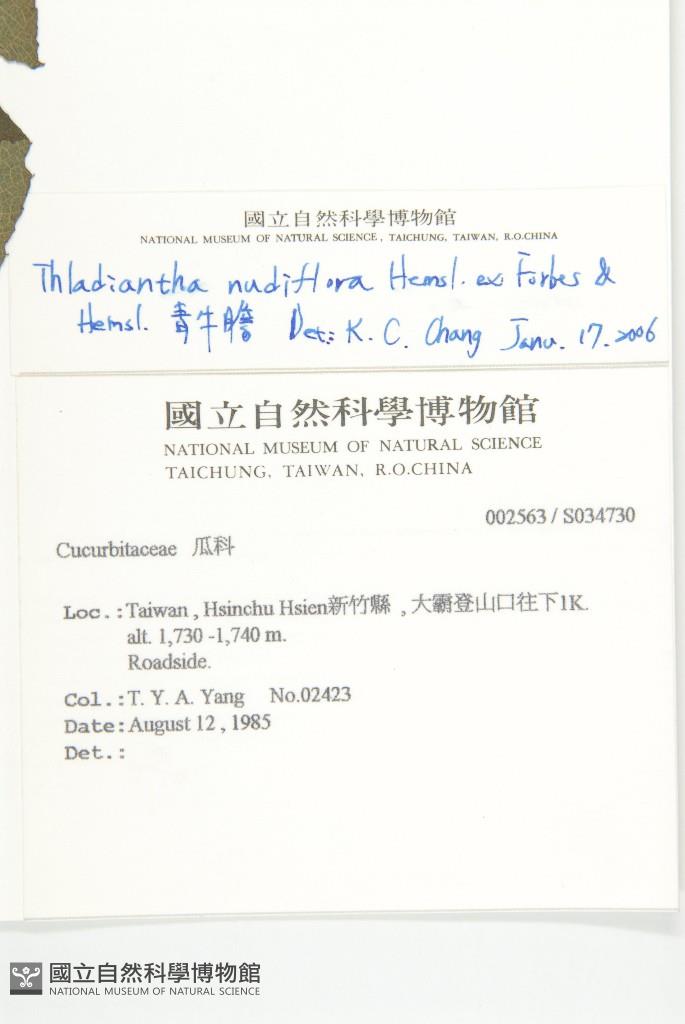 國立自然科學博物館
NATIONAL MUSEUM OF NATURAL SCIENCE, TAICHUNG, TAIWAN, R.O.CHINA
Thladiantha nudiflora Hemsl. ex Forbes &
Hemsl. 青牛膽 Det: K. C. Chang Janu. 17. 2006
國立自然科學博物館
NATIONAL MUSEUM OF NATURAL SCIENCE
TAICHUNG, TAIWAN, R.O.CHINA
002563 / S034730
Cucurbitaceae 瓜科
Loc.: Taiwan , Hsinchu Hsien新竹縣 , 大霸登山口往下1K.
alt. 1,730 -1,740 m.
Roadside.
Col.: T. Y. A. Yang No.02423
Date: August 12 , 1985
Det.:
國立自然科學博物館
NATIONAL MUSEUM OF NATURAL SCIENCE